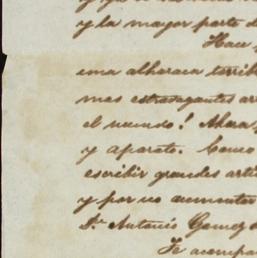 y la mayor parte d
Hace
una alharaca terrib
mas estravagantes ar
el mundo! Ahora
y aparato. Como
escribir grandes arti
y por no aumentar
Dn Antonio Gomez d
Te acompa